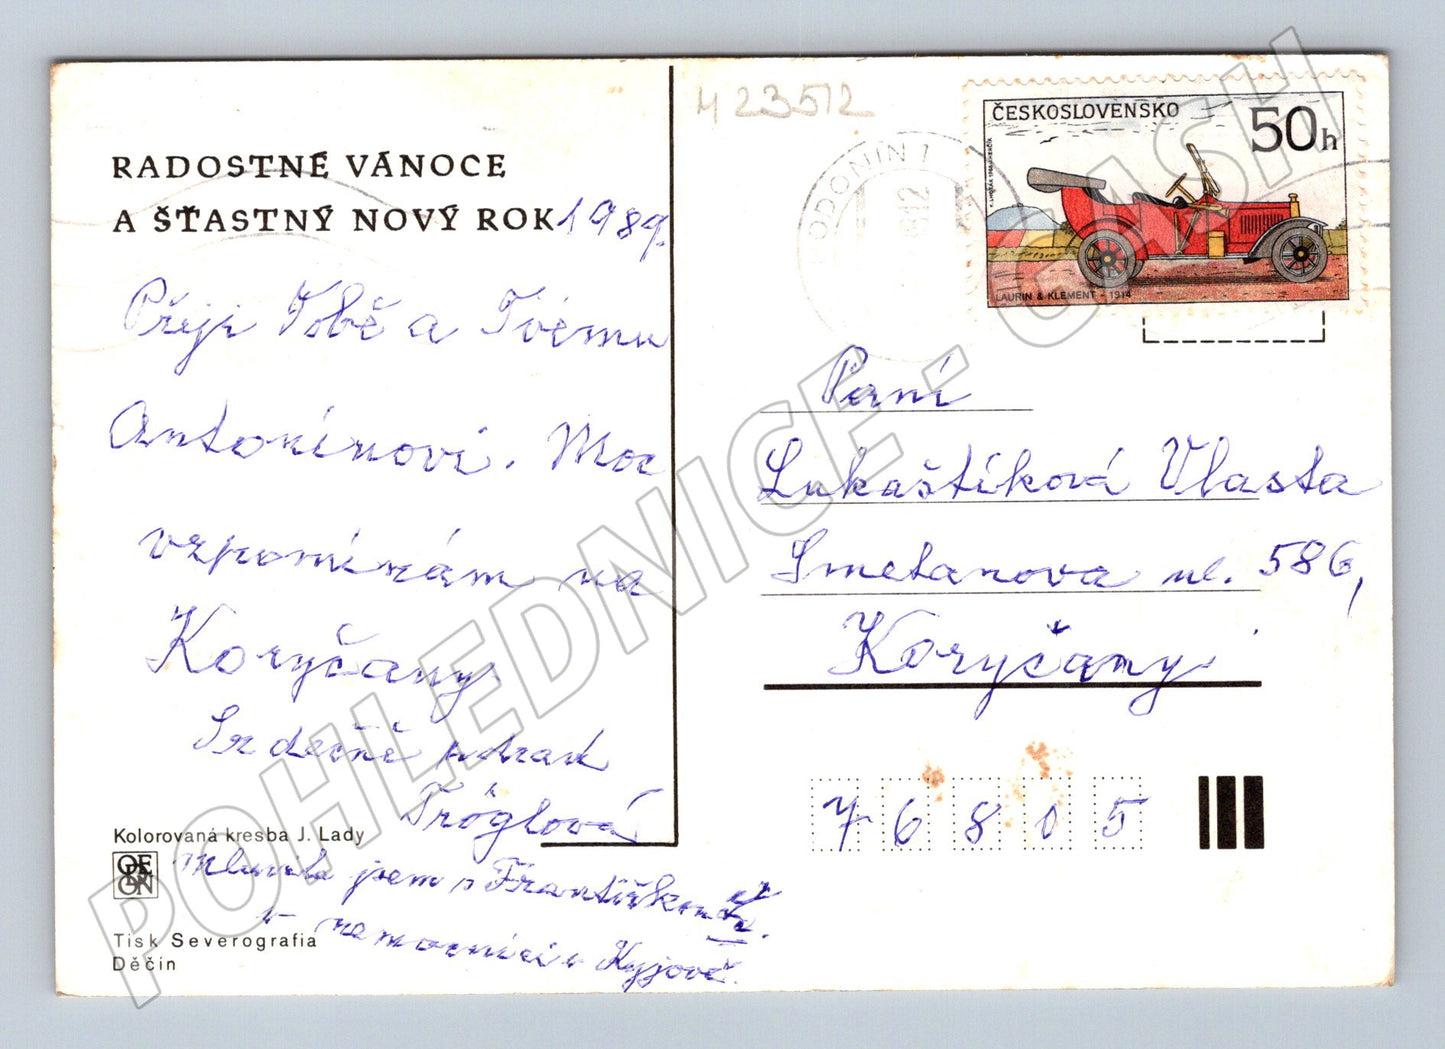 RADOSTNÉ VÁNOCE
A ŠŤASTNÝ NOVÝ ROK 1989.
Přeji Tobě a Tvému
Antonínovi. Moc
vzpomínám na
Koryčany.
Srdečně pozdrav
Tröglová
Mluvila jsem s Františkem
v nemocnici v Kyjově.
Kolorovaná kresba J. Lady
ODEON
Tisk Severografia
Děčín
M 23512
HODONÍN 1
ČESKOSLOVENSKO
50h
LAURIN & KLEMENT - 1914
Paní
Lukaštíková Vlasta
Smetanova ul. 586,
Koryčany
76805
POHLEDNICE - CASH